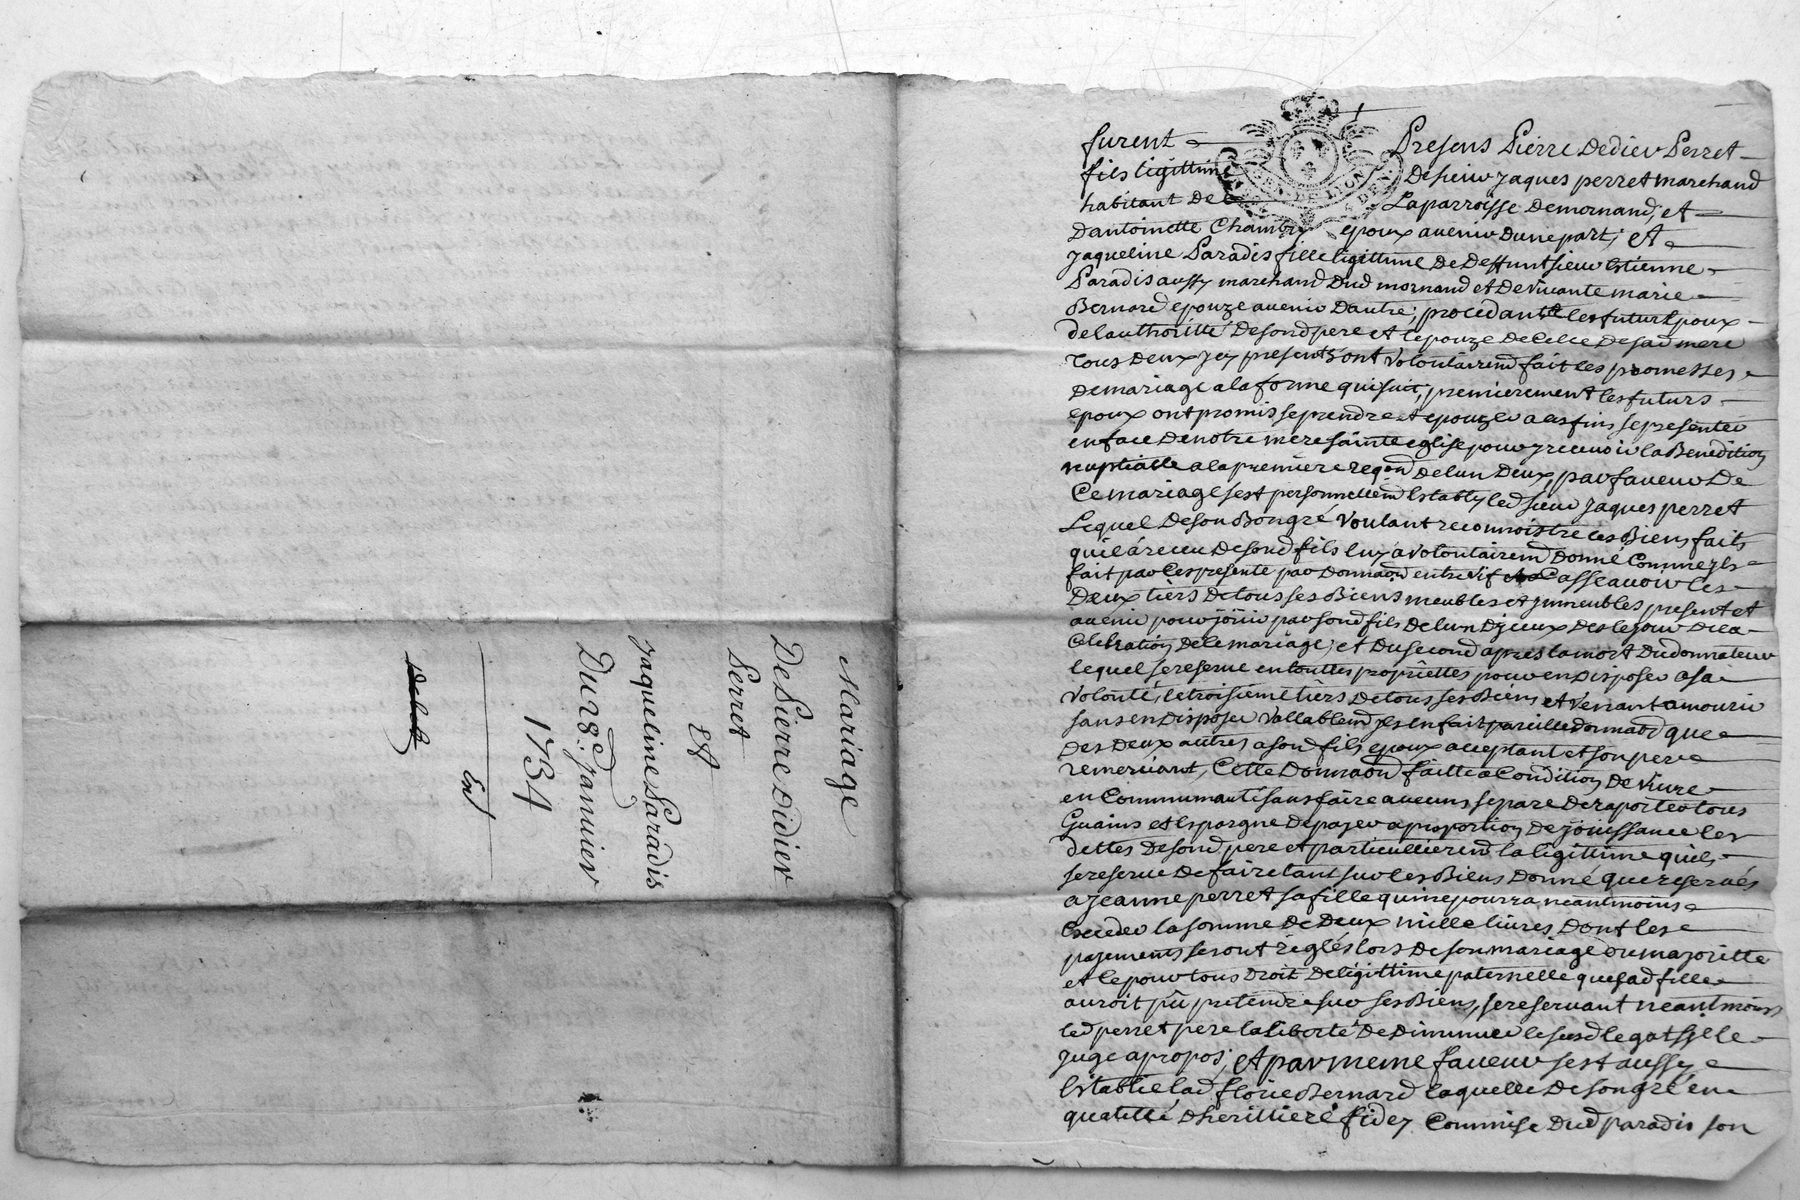 Mariage
De Pierre Didier
Perret
et
Jaqueline Paradis
Du 28.e Janvier
1734
furent Presens Pierre Dedier Perret
fils legittime De sieur Jaques perret marchand
habitant De La parroisse De mornand, et
Dantoinette Chambry epoux avenir Dune part; et
Jaqueline Paradis fille legittime De Deffunt sieur Estienne
Paradis aussy marchand Dud mornand et De vivante marie
Bernard epouze avenir Dautre; procedants les futurs epoux
de lauthoritté De sond pere et lepouze De Celle De sad mere
Tous Deux jcy presents ont volontairemd fait les promesses
De mariage a la forme qui suit; premierement les futurs
epoux ont promis se prendre et epouzer a ces fins se presenter
en face De notre mere sainte eglise pour y recevoir la Benedition
nuptialle a la premiere reqon De lun Deux, par faveur De
Ce mariage sest personnellemd Estably led sieur Jaques perret
Lequel De son Bon gré voulant reconnoistre les Biens faits
quil á receu De sond fils luy a volontairemd Donné Comme jl
fait par Ces presente par Donnaon entre vif assçavoir les
Deux tiers De tous ses Biens meubles et jmmeubles present et
avenir pour joüir par sond fils De lun Djceux Des le jour De la
Celebration De le mariage; et Du second apres la mort Dud donnateur
lequel se reserve en touttes propriettes pour en Disposer a sa
volonté, le troisieme tiers De tous ses Biens et venant a mourir
sans en Disposer vallablemd jl en fait pareille donnaon que
Des Deux autres a sond fils epoux acceptant et son pere
remerciant, Cette Donnaon faitte a Condition De vivre
en Communauté sans faire aucuns separe De raporter tous
Guains et Espargne De payer a proportion De joüissance les
dettes De sond pere et particullieremd la legittime quil
se reserve De faire tant sur les Biens Donné que reservés
a Jeanne perret sa fille qui ne pourra neantmoins
Exceder la somme De Deux mille livres Dont les
payements seront reglés lors De son mariage ou majoritte
et le pour tous Droit De legittime paternelle que sad fille
auroit pû pretendre sur ses Biens, se reservant neantmoins
led perret pere la liberté De Diminuer le susd legat sjl le
juge apropos; et par meme faveur sest aussy
Establie lad florie Bernard laquelle De son gré en
qualitté Dherittiere fidey Commise Dud paradis son